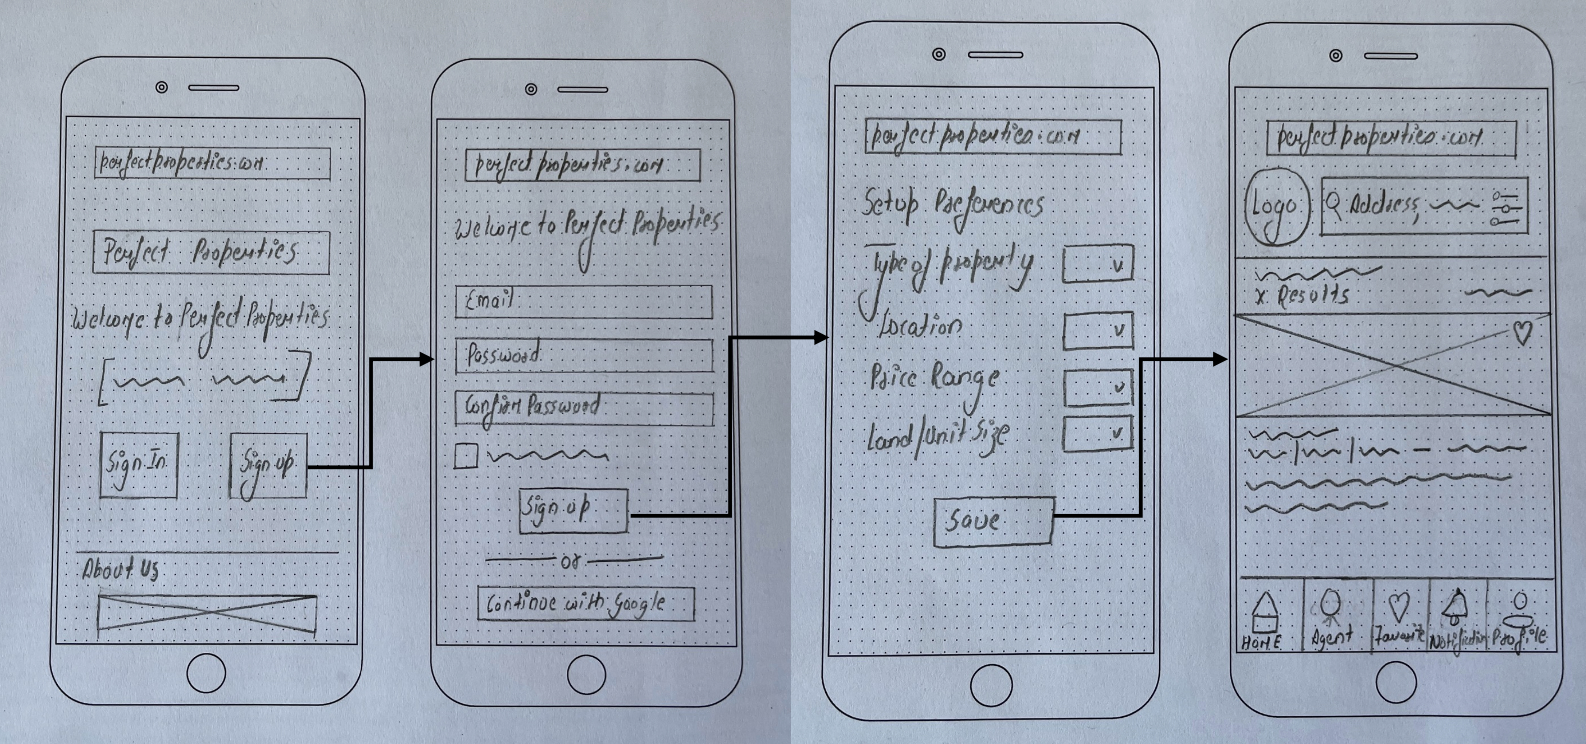 perfectproperties.com
Perfect Properties
Welcome to Perfect Properties
Sign In
Sign up
About Us
perfectproperties.com
Welcome to Perfect Properties
Email
Password
Confirm Password
Sign up
or
Continue with Google
perfectproperties.com
Setup Preferences
Type of property
Location
Price Range
Land/Unit Size
Save
perfectproperties.com
Logo
Address,
x Results
HOME
Agent
Favourite
Notification
Profile